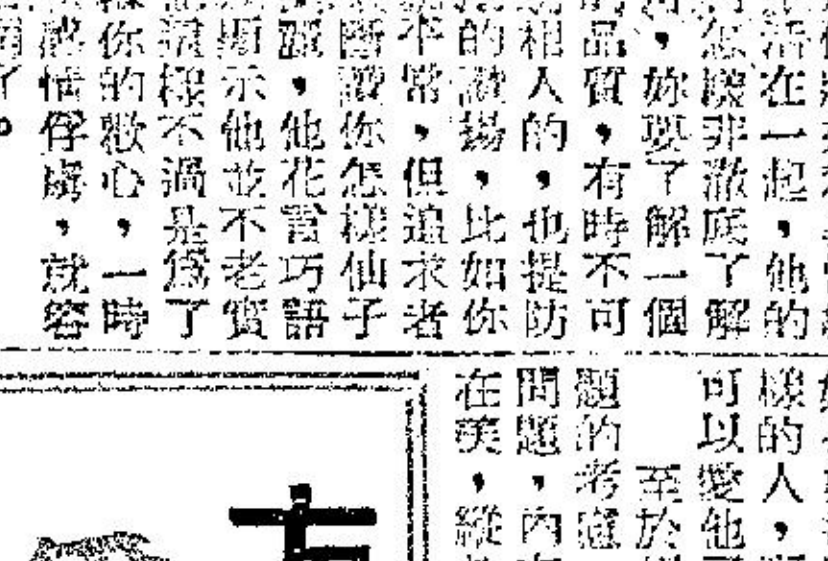 活在一起，他的
怎麼非澈底了解
，妳要了解一個
品質，有時不可
相人的，也提防
的讚揚，比如你
不常，但追求者
斷讚你怎樣仙子
，他花言巧語
顯示他並不老實
樣不過是爲了
你的歡心，一時
情俘虜，就容
了。
樣的人，
可以愛他
至於
題的考慮
問題，內
在美，縱